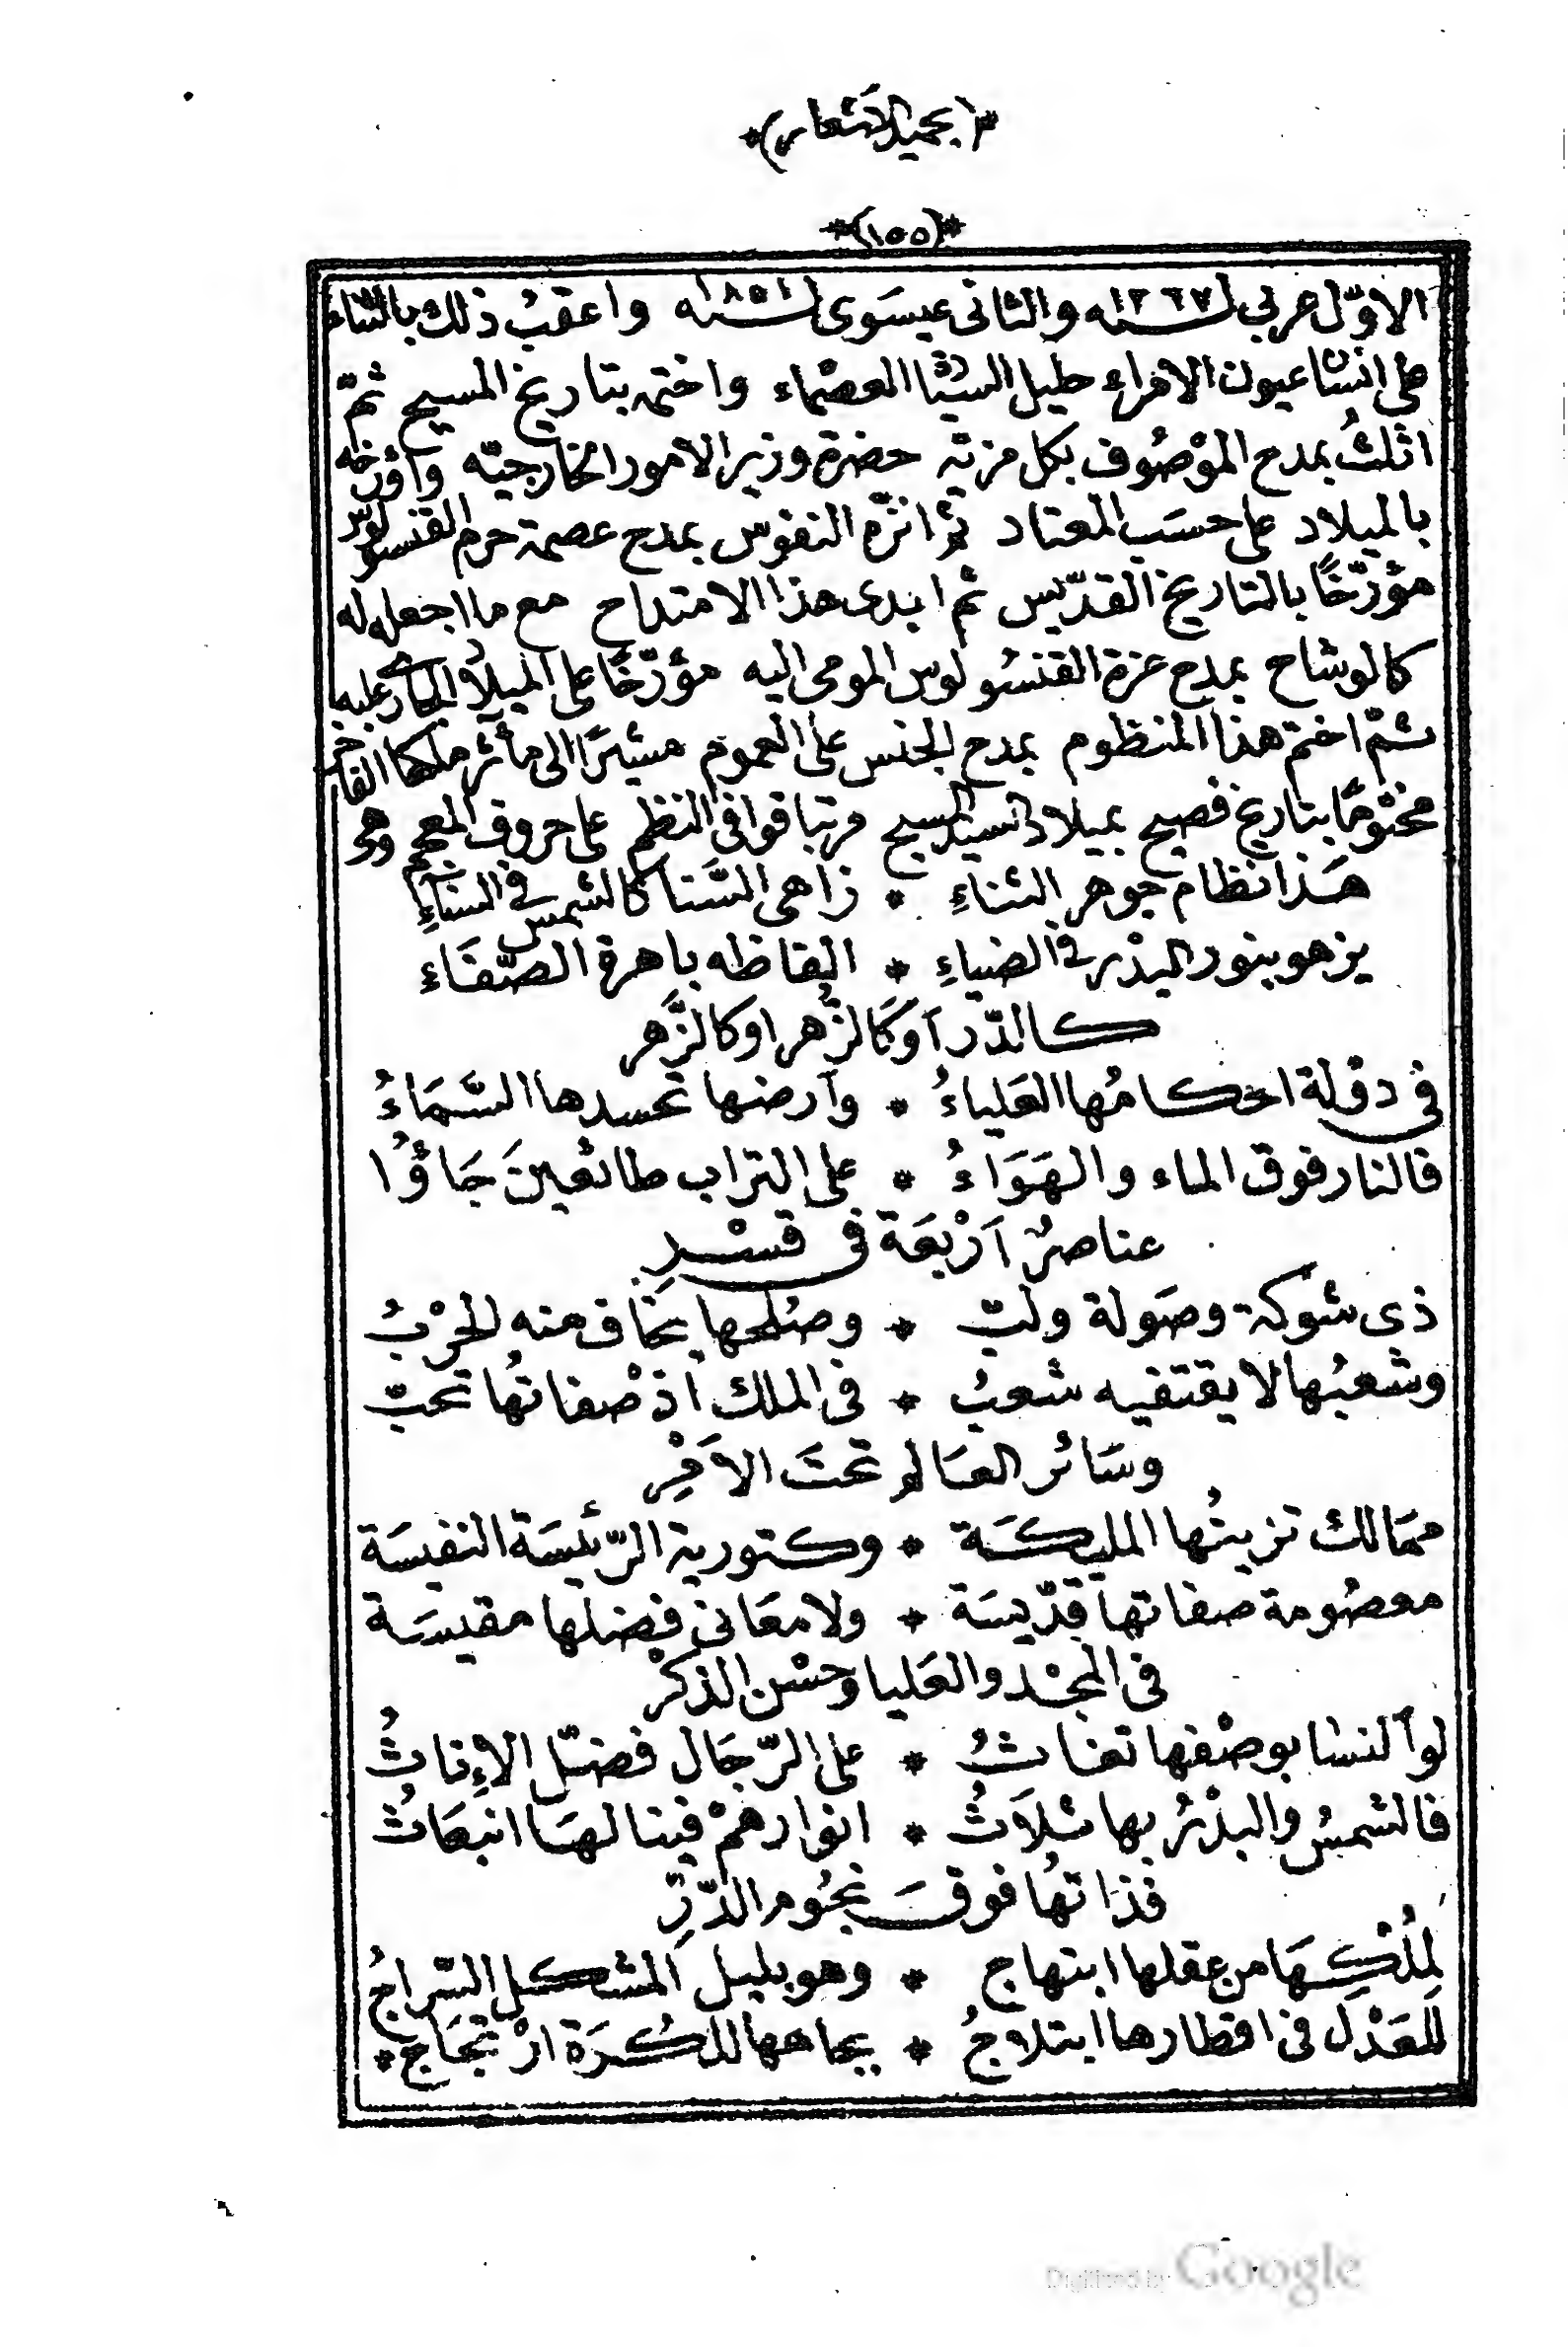 *(بجميل الاشعار)*
*(١٥٥)*
الاوّل عربي لسنة ١٢٦٧ والثانى عيسَوى لسنة ١٨٥١ واعقبُ ذلك بالثناء
على انسان عيون الامراء جليل الشيم العصماء واختمه بتاريخ المسيح ثمّ
اثلثُ بمدح الموْصُوف بكل مزيّه حضرة وزير الامور الخارجيّه وآؤرخه
بالميلاد على حسَب المعتاد ثم انزّه النفوس بمدح عصمة حرم القنسولوس
مؤرّخًا بالتاريخ القدّيس ثم ابدى هذا الامتداح مع ما اجعله له
كالوشاح بمدح عزة القنسُولوس المومى اليه مؤرّخًا على الميلاد الجارى عليه
ثمّ اختم هذا المنظوم بمدح الجنس على العموم مشيرًا الى مأثر ملكها الفاخر
مختومًا بتاريخ فصيح بميلاد السيد المسيح مرتبا قوافى النظم على حروف المعجم وهى
هَذا نظام جوهر الثناءِ * زاهى السَّنا كالشمس فى السَناءِ
يزهو بنور البدْر فى الضياءِ * الفاظه باهرة الصَّفَاء
كالدّر آوكَالزُّهر اوكالزَّهر
فى دوْلة احكامُها العَلياءُ * وآرضها تحسدها السَّمَاءُ
فالنار فوق الماء والهَوَاءُ * على التراب طائعينَ جَاؤُا
عناصرٌ آرْبعَة فى قسْرِ
ذى شوكة وصَولة ولبّ * وصُلحها يخَاف منه الحرْبُ
وشعبُها لا يقتفيه شعبُ * فى الملك اذْ صفاتُها تحبّ
وسَائر العَالم تحتَ الآمْرِ
ممَالك تزينُها المليكَة * وكتورية الرّئيسَة النفيسَة
معصُومة صفاتها قدّيسَة * ولا معَانى فضلها مقيسَة
فى المجْد والعَليا وحسْن الذكرْ
لو آلنسَا بوصْفها تغاثُ * على الرّجَال فضّل الإِناثُ
فالشمسُ والبدْرُ بها ثلَاثُ * انوارهمْ فينا لهَا انبعَاثُ
فذاتهُا فوقَ نجُوم الدّرِّ
لمِلُكِهَا من عقلها ابتهاج * وهو بليل المشكل السّراجُ
للعَدْلِ فى اقطارها ابتلاجُ * بجاهها للكُرَة ارْتجَاج *